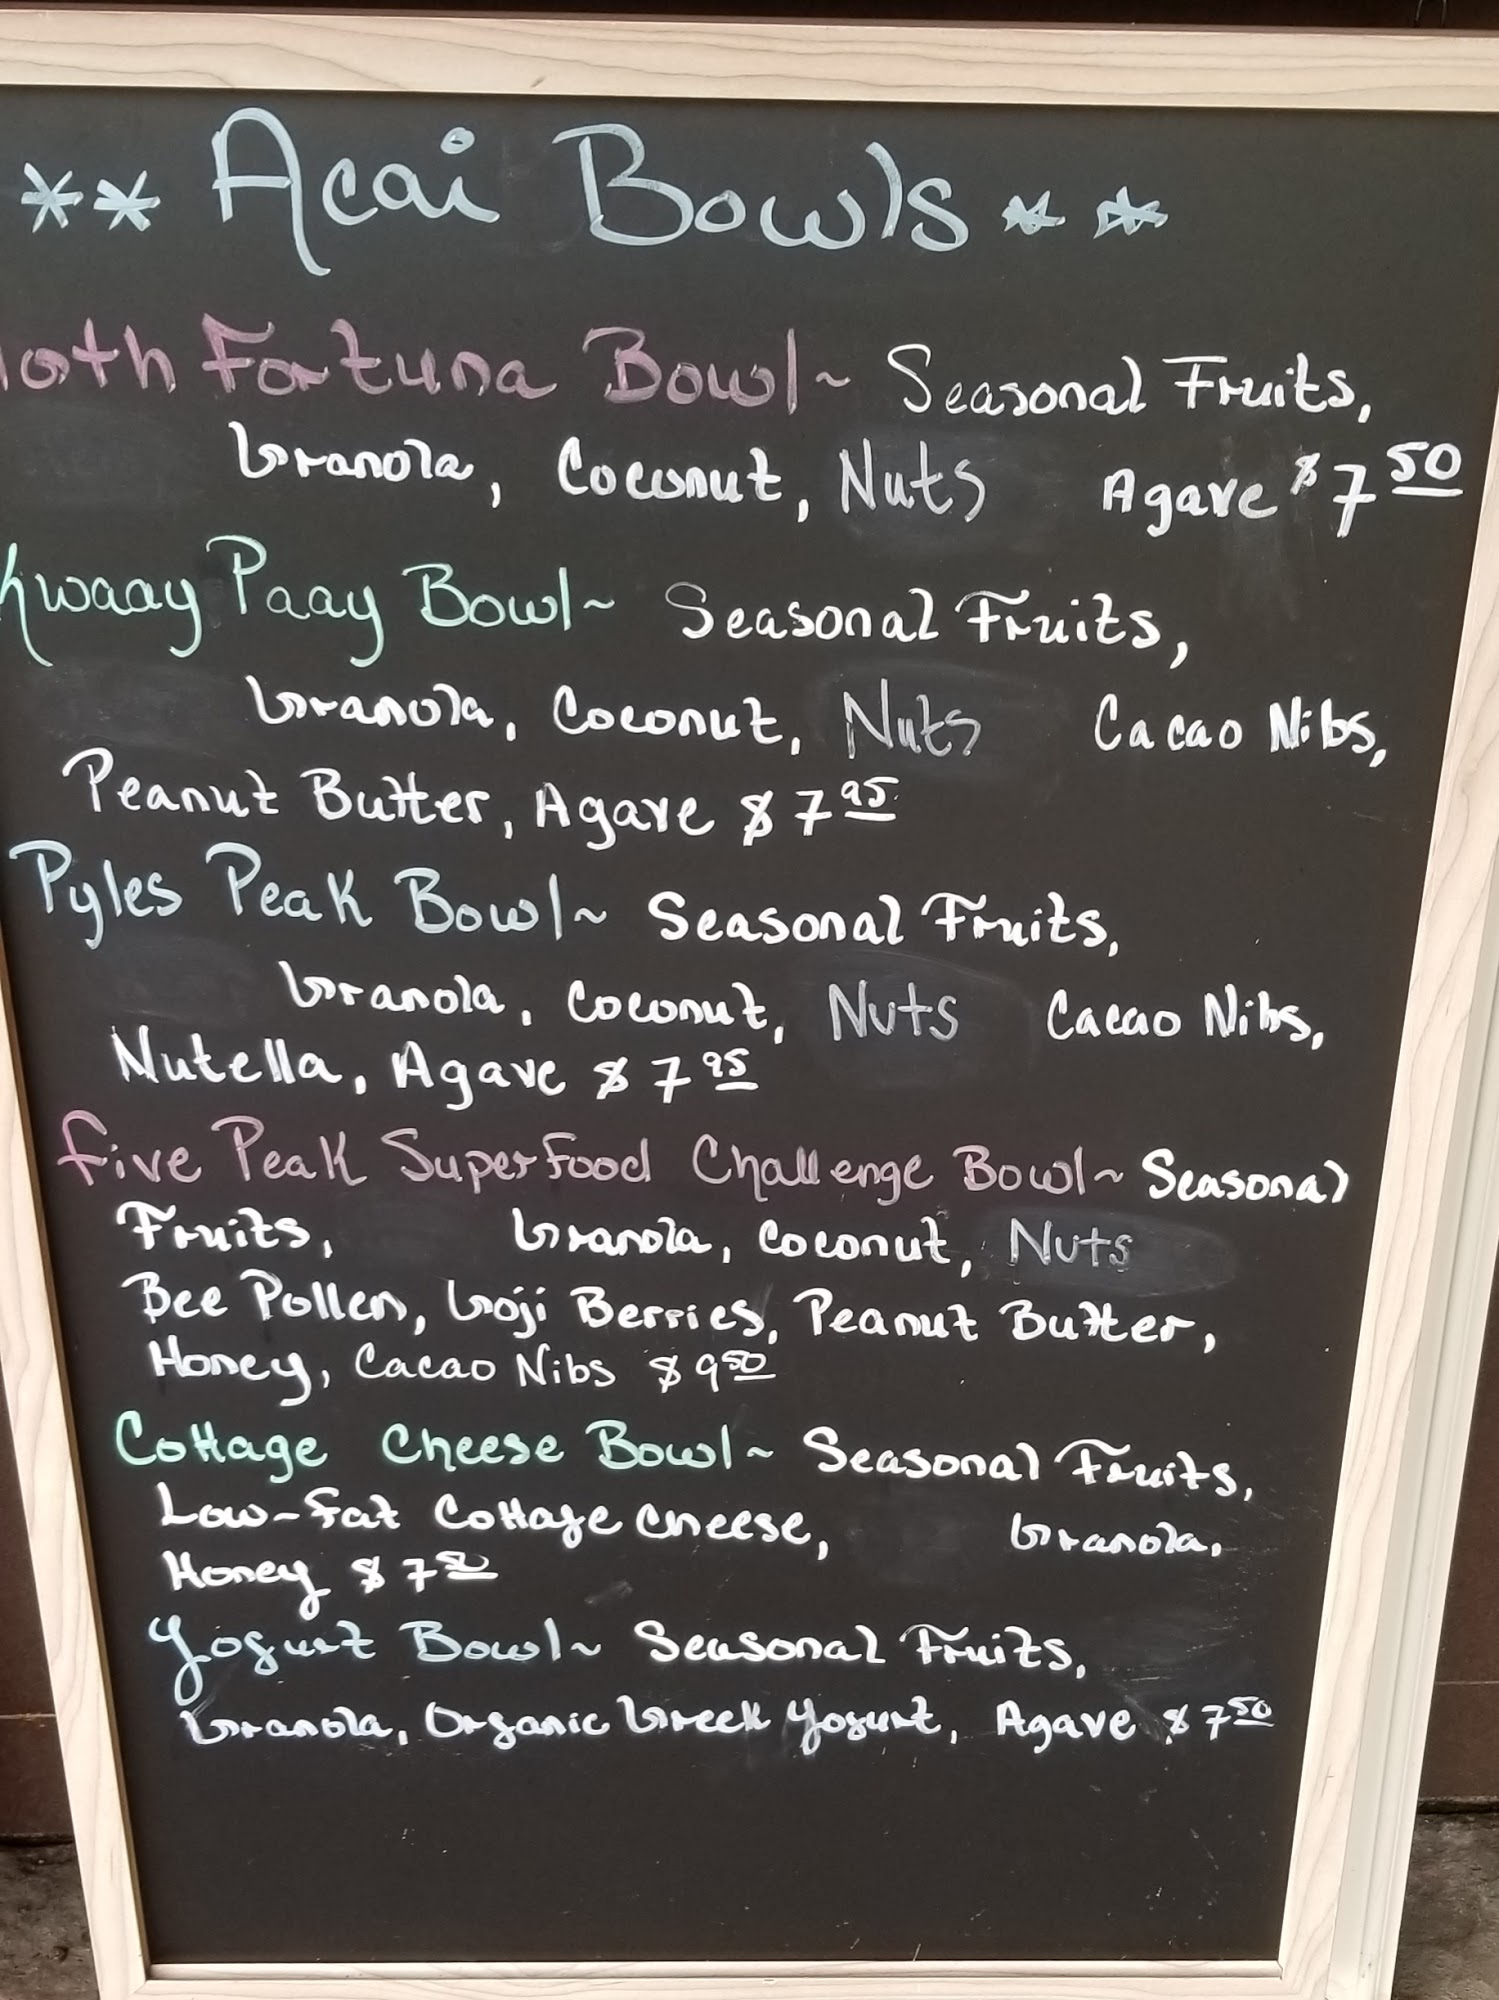 ** Acai Bowls **
Fortuna Bowl~ Seasonal Fruits,
Granola, Coconut, Nuts Agave $7 50
Kwaay Paay Bowl~ Seasonal Fruits,
Granola, Coconut, Nuts Cacao Nibs,
Peanut Butter, Agave $7 95
Pyles Peak Bowl~ Seasonal Fruits,
Granola, Coconut, Nuts Cacao Nibs,
Nutella, Agave $7 95
Five Peak SuperFood Challenge Bowl~ Seasonal
Fruits, Granola, Coconut, Nuts
Bee Pollen, Goji Berries, Peanut Butter,
Honey, Cacao Nibs $9 50
Cottage Cheese Bowl~ Seasonal Fruits,
Low-Fat Cottage Cheese, Granola,
Honey $7 50
Yogurt Bowl~ Seasonal Fruits,
Granola, Organic Greek Yogurt, Agave $7 50